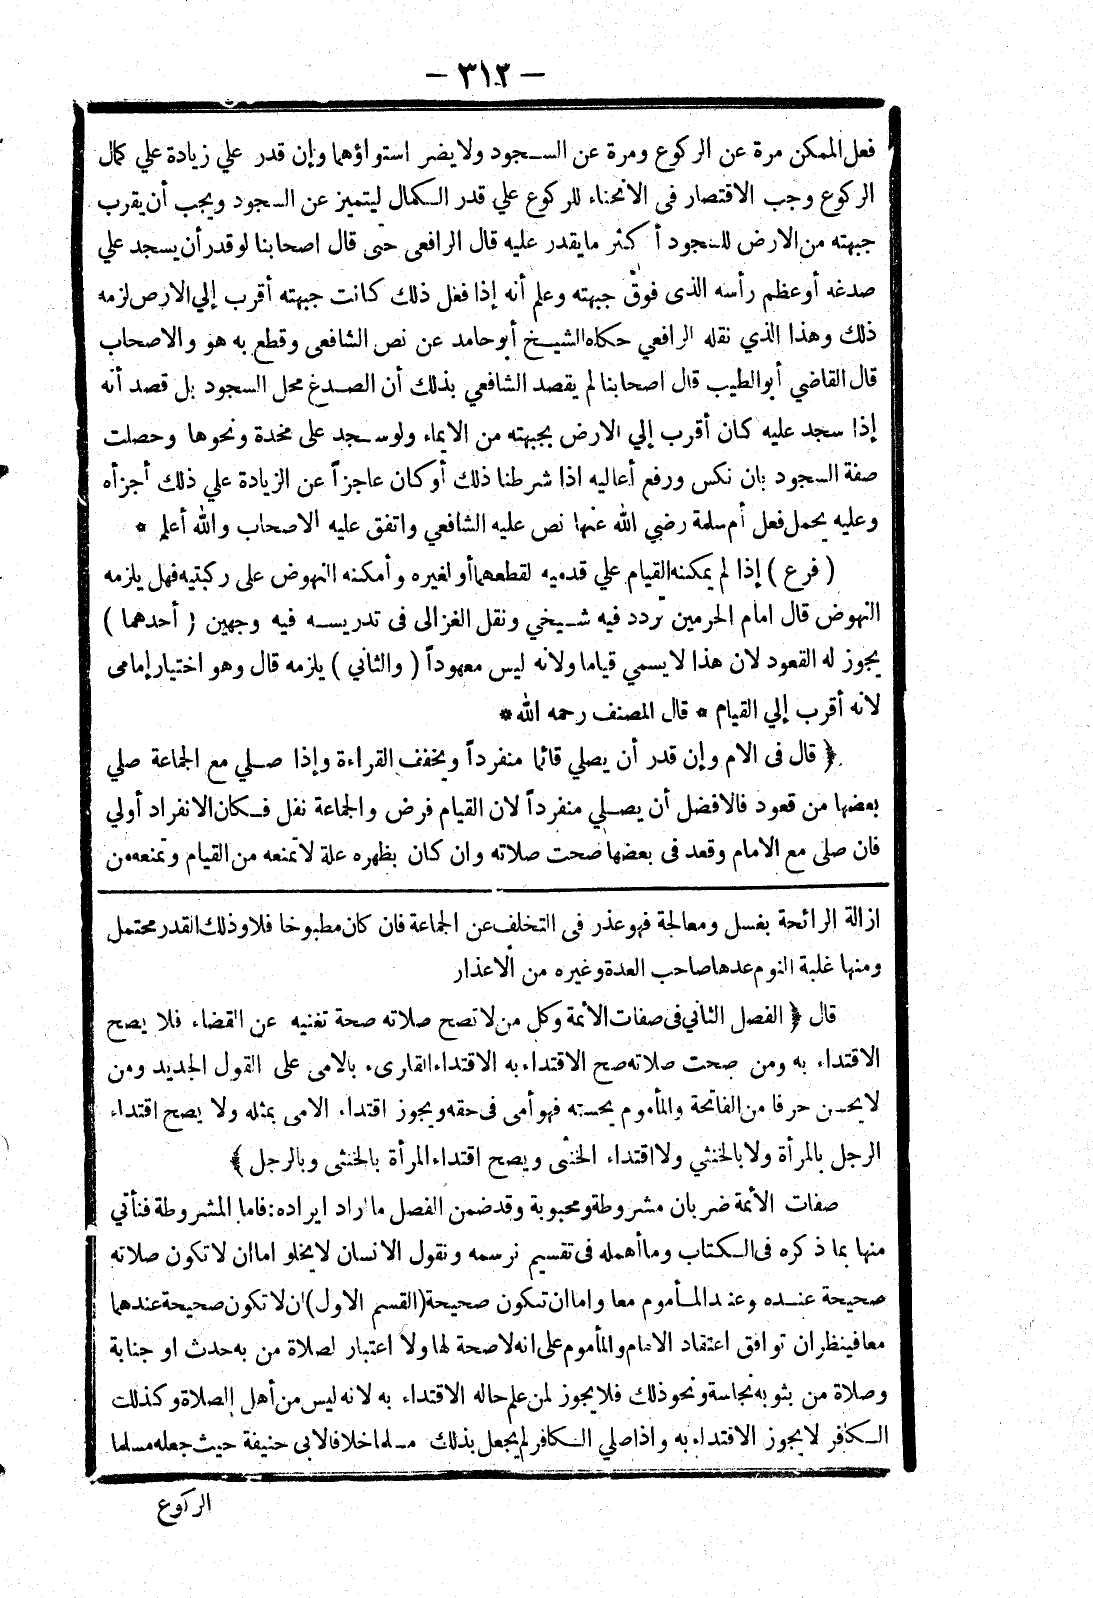 — ٣١٢ —
فعل الممكن مرة عن الركوع ومرة عن السجود ولا يضر استواؤهما وإن قدر علي زيادة علي كمال
الركوع وجب الاقتصار فى الانحناء للركوع علي قدر الكمال ليتميز عن السجود ويجب أن يقرب
جبهته من الارض للسجود أكثر ما يقدر عليه قال الرافعى حتى قال اصحابنا لو قدر أن يسجد علي
صدغه أو عظم رأسه الذى فوق جبهته وعلم أنه إذا فعل ذلك كانت جبهته أقرب إلي الارض لزمه
ذلك وهذا الذي نقله الرافعي حكاه الشيخ أبو حامد عن نص الشافعى وقطع به هو والاصحاب
قال القاضي أبو الطيب قال اصحابنا لم يقصد الشافعي بذلك أن الصدغ محل السجود بل قصد أنه
إذا سجد عليه كان أقرب إلي الارض بجبهته من الايماء ولو سجد على مخدة ونحوها وحصلت
صفة السجود بان نكس ورفع أعاليه اذا شرطنا ذلك أو كان عاجزاً عن الزيادة علي ذلك أجزأه
وعليه يحمل فعل أم سلمة رضي الله عنها نص عليه الشافعي واتفق عليه الاصحاب والله أعلم *
( فرع ) إذا لم يمكنه القيام علي قدميه لقطعهما أو لغيره وأمكنه النهوض على ركبتيه فهل يلزمه
النهوض قال امام الحرمين تردد فيه شيخي ونقل الغزالى فى تدريسه فيه وجهين ( أحدهما )
يجوز له القعود لان هذا لا يسمي قياما ولانه ليس معهوداً ( والثاني ) يلزمه قال وهو اختيار إمامى
لانه أقرب إلي القيام * قال المصنف رحمه الله *
﴿ قال فى الام وإن قدر أن يصلي قائما منفرداً ويخفف القراءة وإذا صلي مع الجماعة صلي
بعضها من قعود فالافضل أن يصلي منفرداً لان القيام فرض والجماعة نفل فكان الانفراد أولي
فان صلى مع الامام وقعد فى بعضها صحت صلاته وان كان بظهره علة لا تمنعه من القيام وتمنعه من
ازالة الرائحة بغسل ومعالجة فهو عذر فى التخلف عن الجماعة فان كان مطبوخا فلا وذلك القدر محتمل
ومنها غلبة النوم عدها صاحب العدة وغيره من الاعذار
قال ﴿ الفصل الثاني فى صفات الأئمة وكل من لا تصح صلاته صحة تغنيه عن القضاء فلا يصح
الاقتداء به ومن صحت صلاته صح الاقتداء به الا اقتداء القارىء بالامى على القول الجديد ومن
لا يحسن حرفا من الفاتحة والمأموم يحسنه فهو أمى فى حقه ويجوز اقتداء الامى بمثله ولا يصح اقتداء
الرجل بالمرأة ولا بالخنثي ولا اقتداء الخنثى ويصح اقتداء المرأة بالخنثى وبالرجل ﴾
صفات الأئمة ضربان مشروطة ومحبوبة وقد ضمن الفصل ما اراد ايراده : فاما المشروطة فنأتي
منها بما ذكره فى الكتاب وما أهمله فى تقسيم نرسمه ونقول الانسان لا يخلو اما ان لا تكون صلاته
صحيحة عنده وعند المأموم معا واما ان تكون صحيحة ( القسم الاول ) ان لا تكون صحيحة عندهما
معا فينظر ان توافق اعتقاد الامام والمأموم على انه لا صحة لها ولا اعتبار لصلاة من به حدث او جنابة
وصلاة من بثوبه نجاسة ونحو ذلك فلا يجوز لمن علم حاله الاقتداء به لانه ليس من أهل الصلاة وكذلك
الكافر لا يجوز الاقتداء به واذا صلي الكافر لم يجعل بذلك مسلما خلافا لابى حنيفة حيث جعله مسلما
الركوع